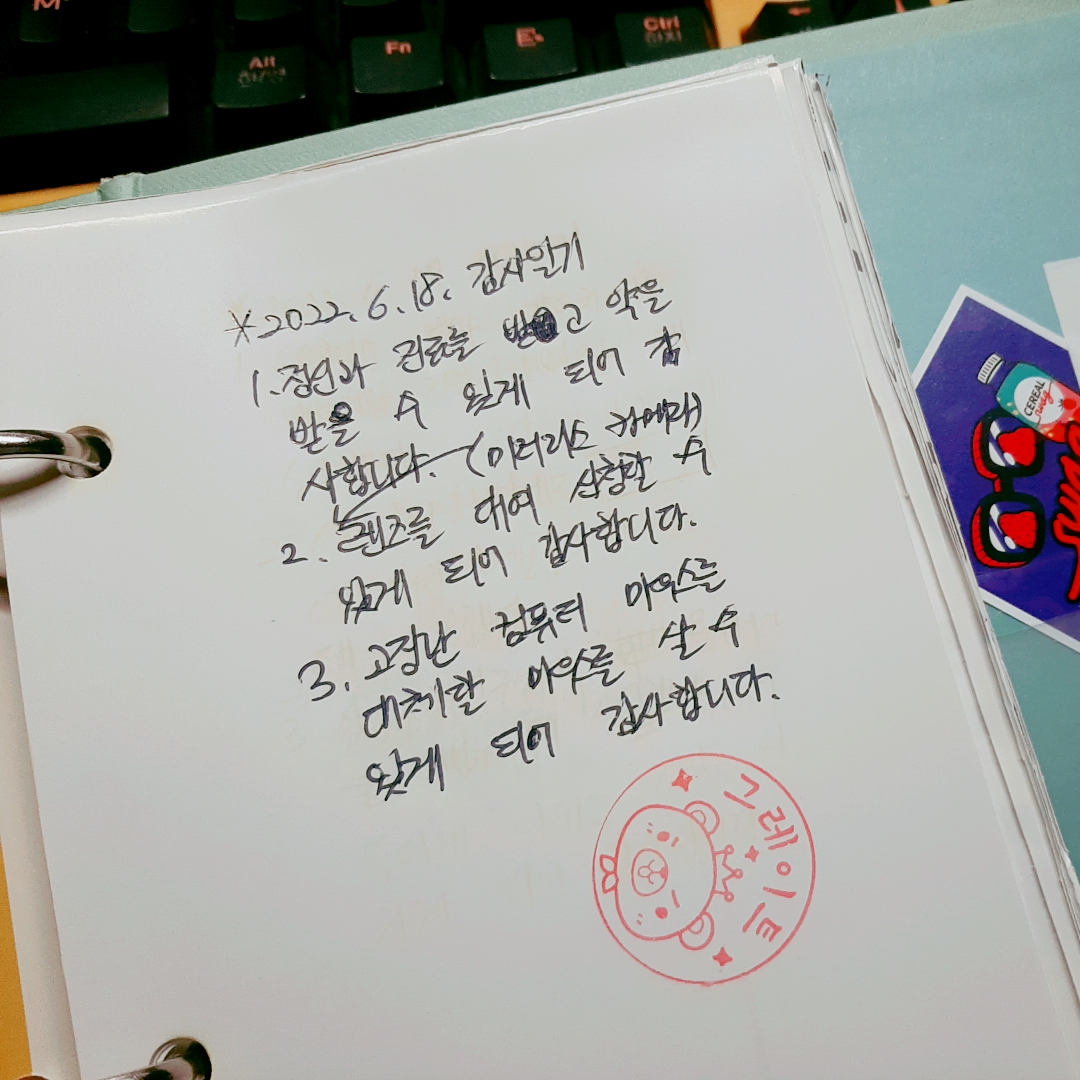 M
Alt
한/영
Fn
Ctrl
한자
*2022. 6. 18. 감사일기
1. 정인과 진료를 받고 약을
받을 수 있게 되어 감
사합니다. (미러리스 카메라)
2. 렌즈를 대여 신청할 수
있게 되어 감사합니다.
3. 고장난 컴퓨터 마우스를
대체할 마우스를 살 수
있게 되어 감사합니다.
그레이트
CEREAL